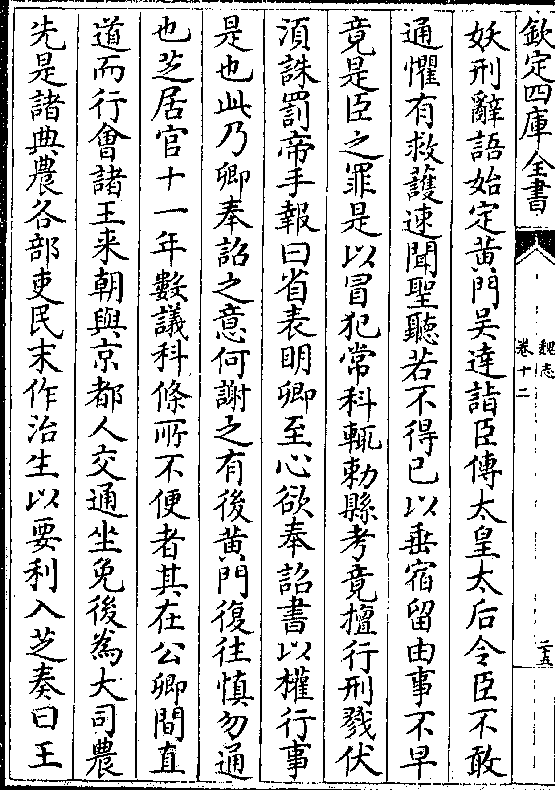 欽定四庫全書
魏志
卷十二
二十五
妖刑辭語始定黄門吴達詣臣傳太皇太后令臣不敢
通懼有救䕶速聞聖聽若不得已以垂宿留由事不早
竟是臣之罪是以冒犯常科輒勅縣考竟擅行刑戮伏
湏誅罰帝手報曰省表明卿至心欲奉詔書以權行事
是也此乃卿奉詔之意何謝之有後黄門復往慎勿通
也芝居官十一年數議科條所不便者其在公卿間直
道而行㑹諸王来朝與京都人交通坐免後為大司農
先是諸典農各部吏民末作治生以要利入芝奏曰王